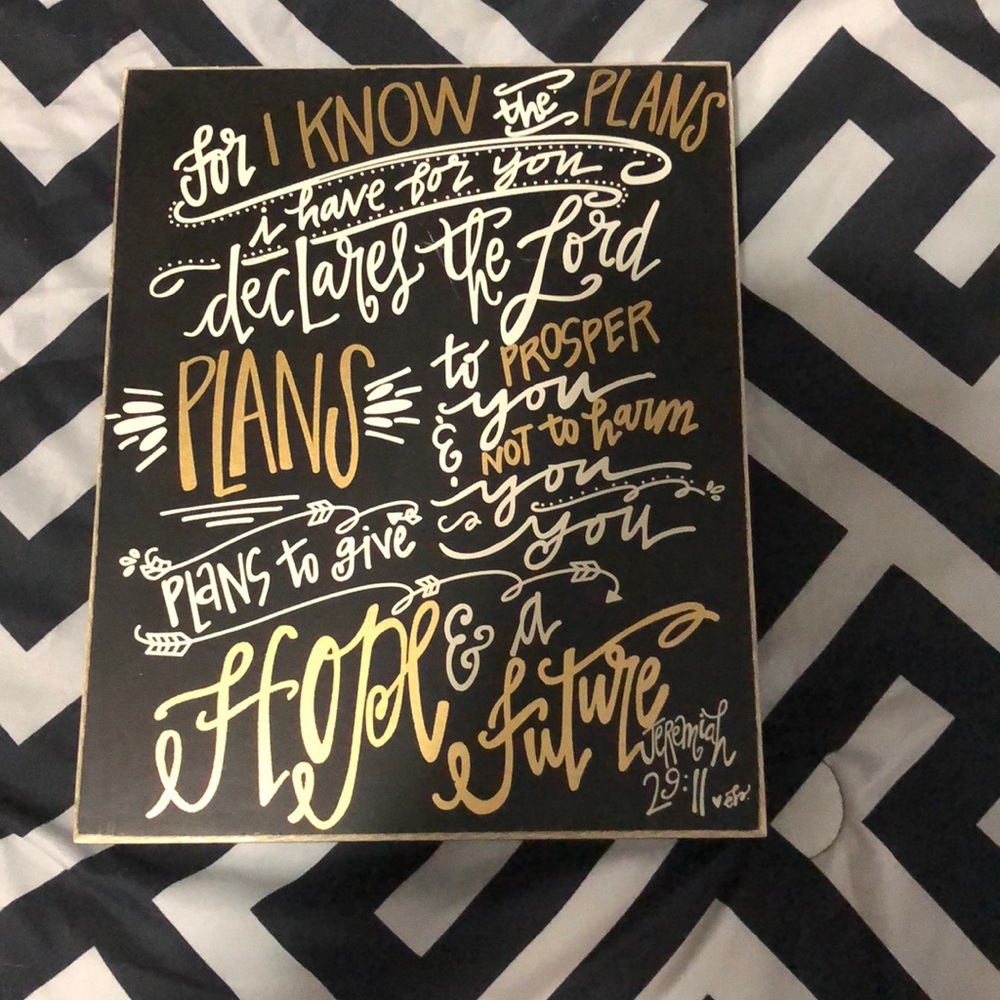 for I KNOW the PLANS
i have for you
decLares the Lord
PLANS
to PROSPER
you
& NOT to harm
you
PLANS to give you
Hope & a
future
Jeremiah
29:11